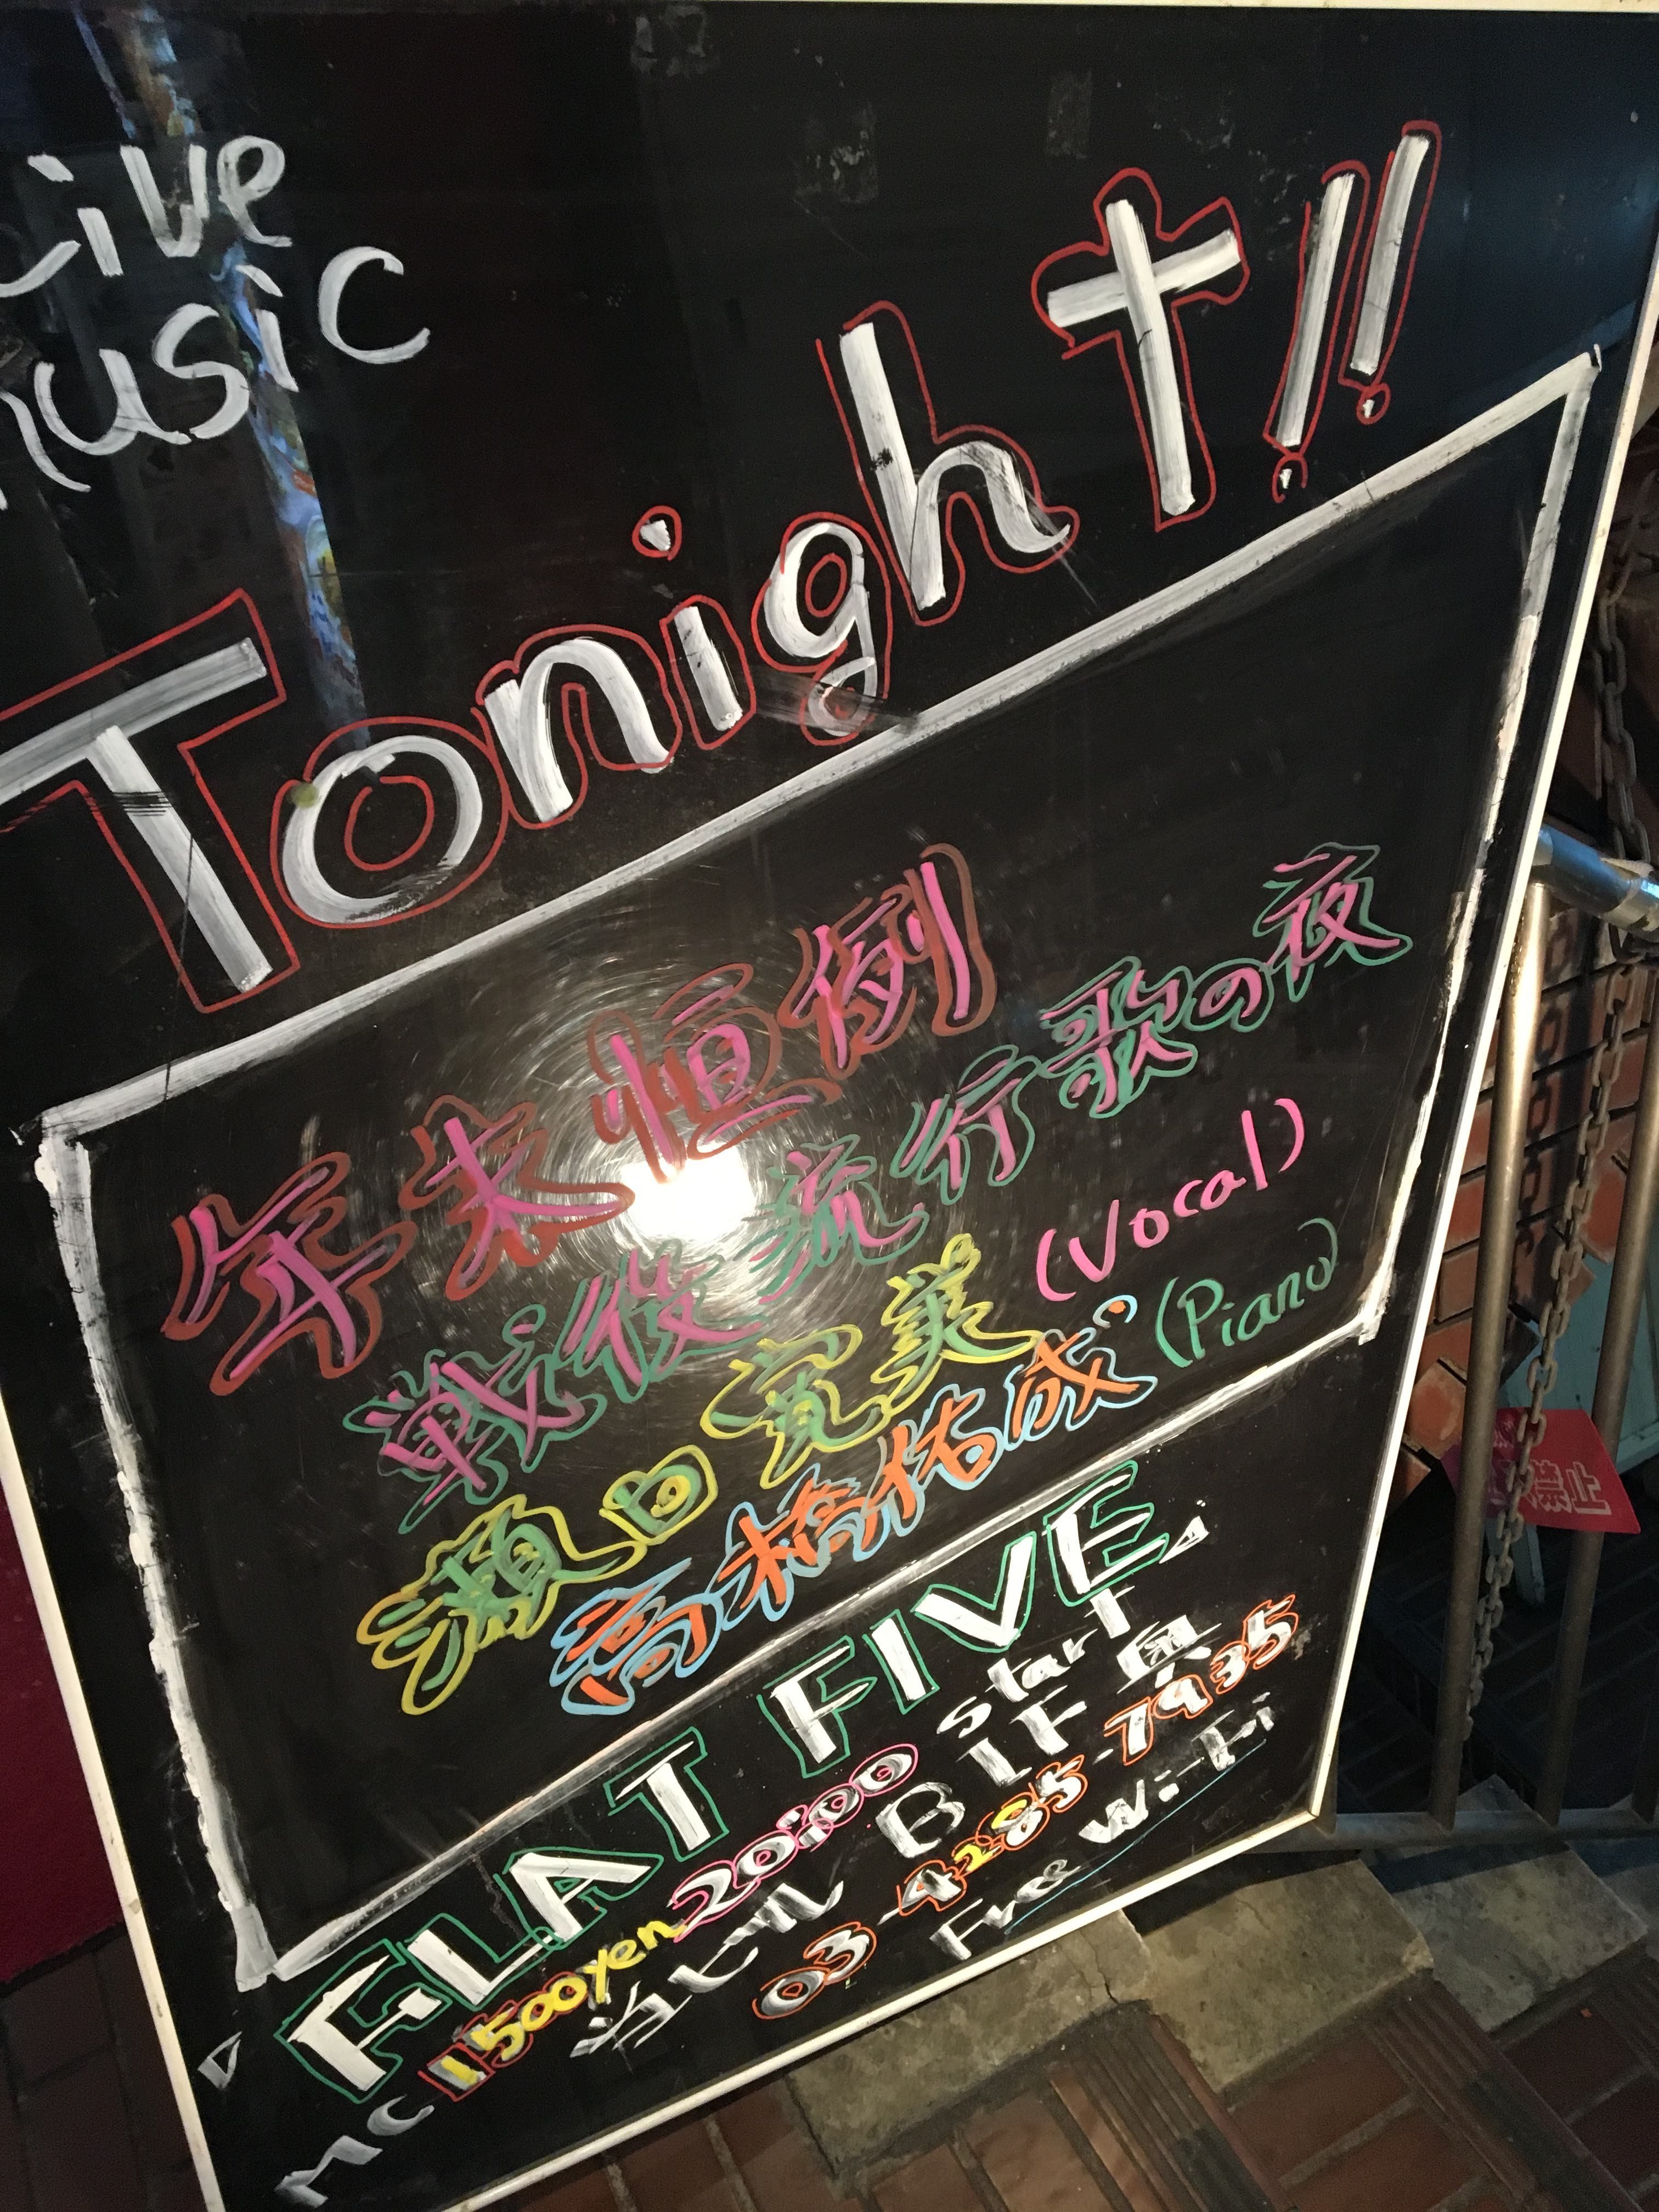 Live
music
Tonight!!
年末恒例
戦後流行歌の夜
瀬口寛美 (Vocal)
高橋佑成 (Piano)
FLAT FIVE
MC 1500yen 20:00 Start
当ビル B1F 奥
03-4285-7935
Free Wi-Fi
禁止